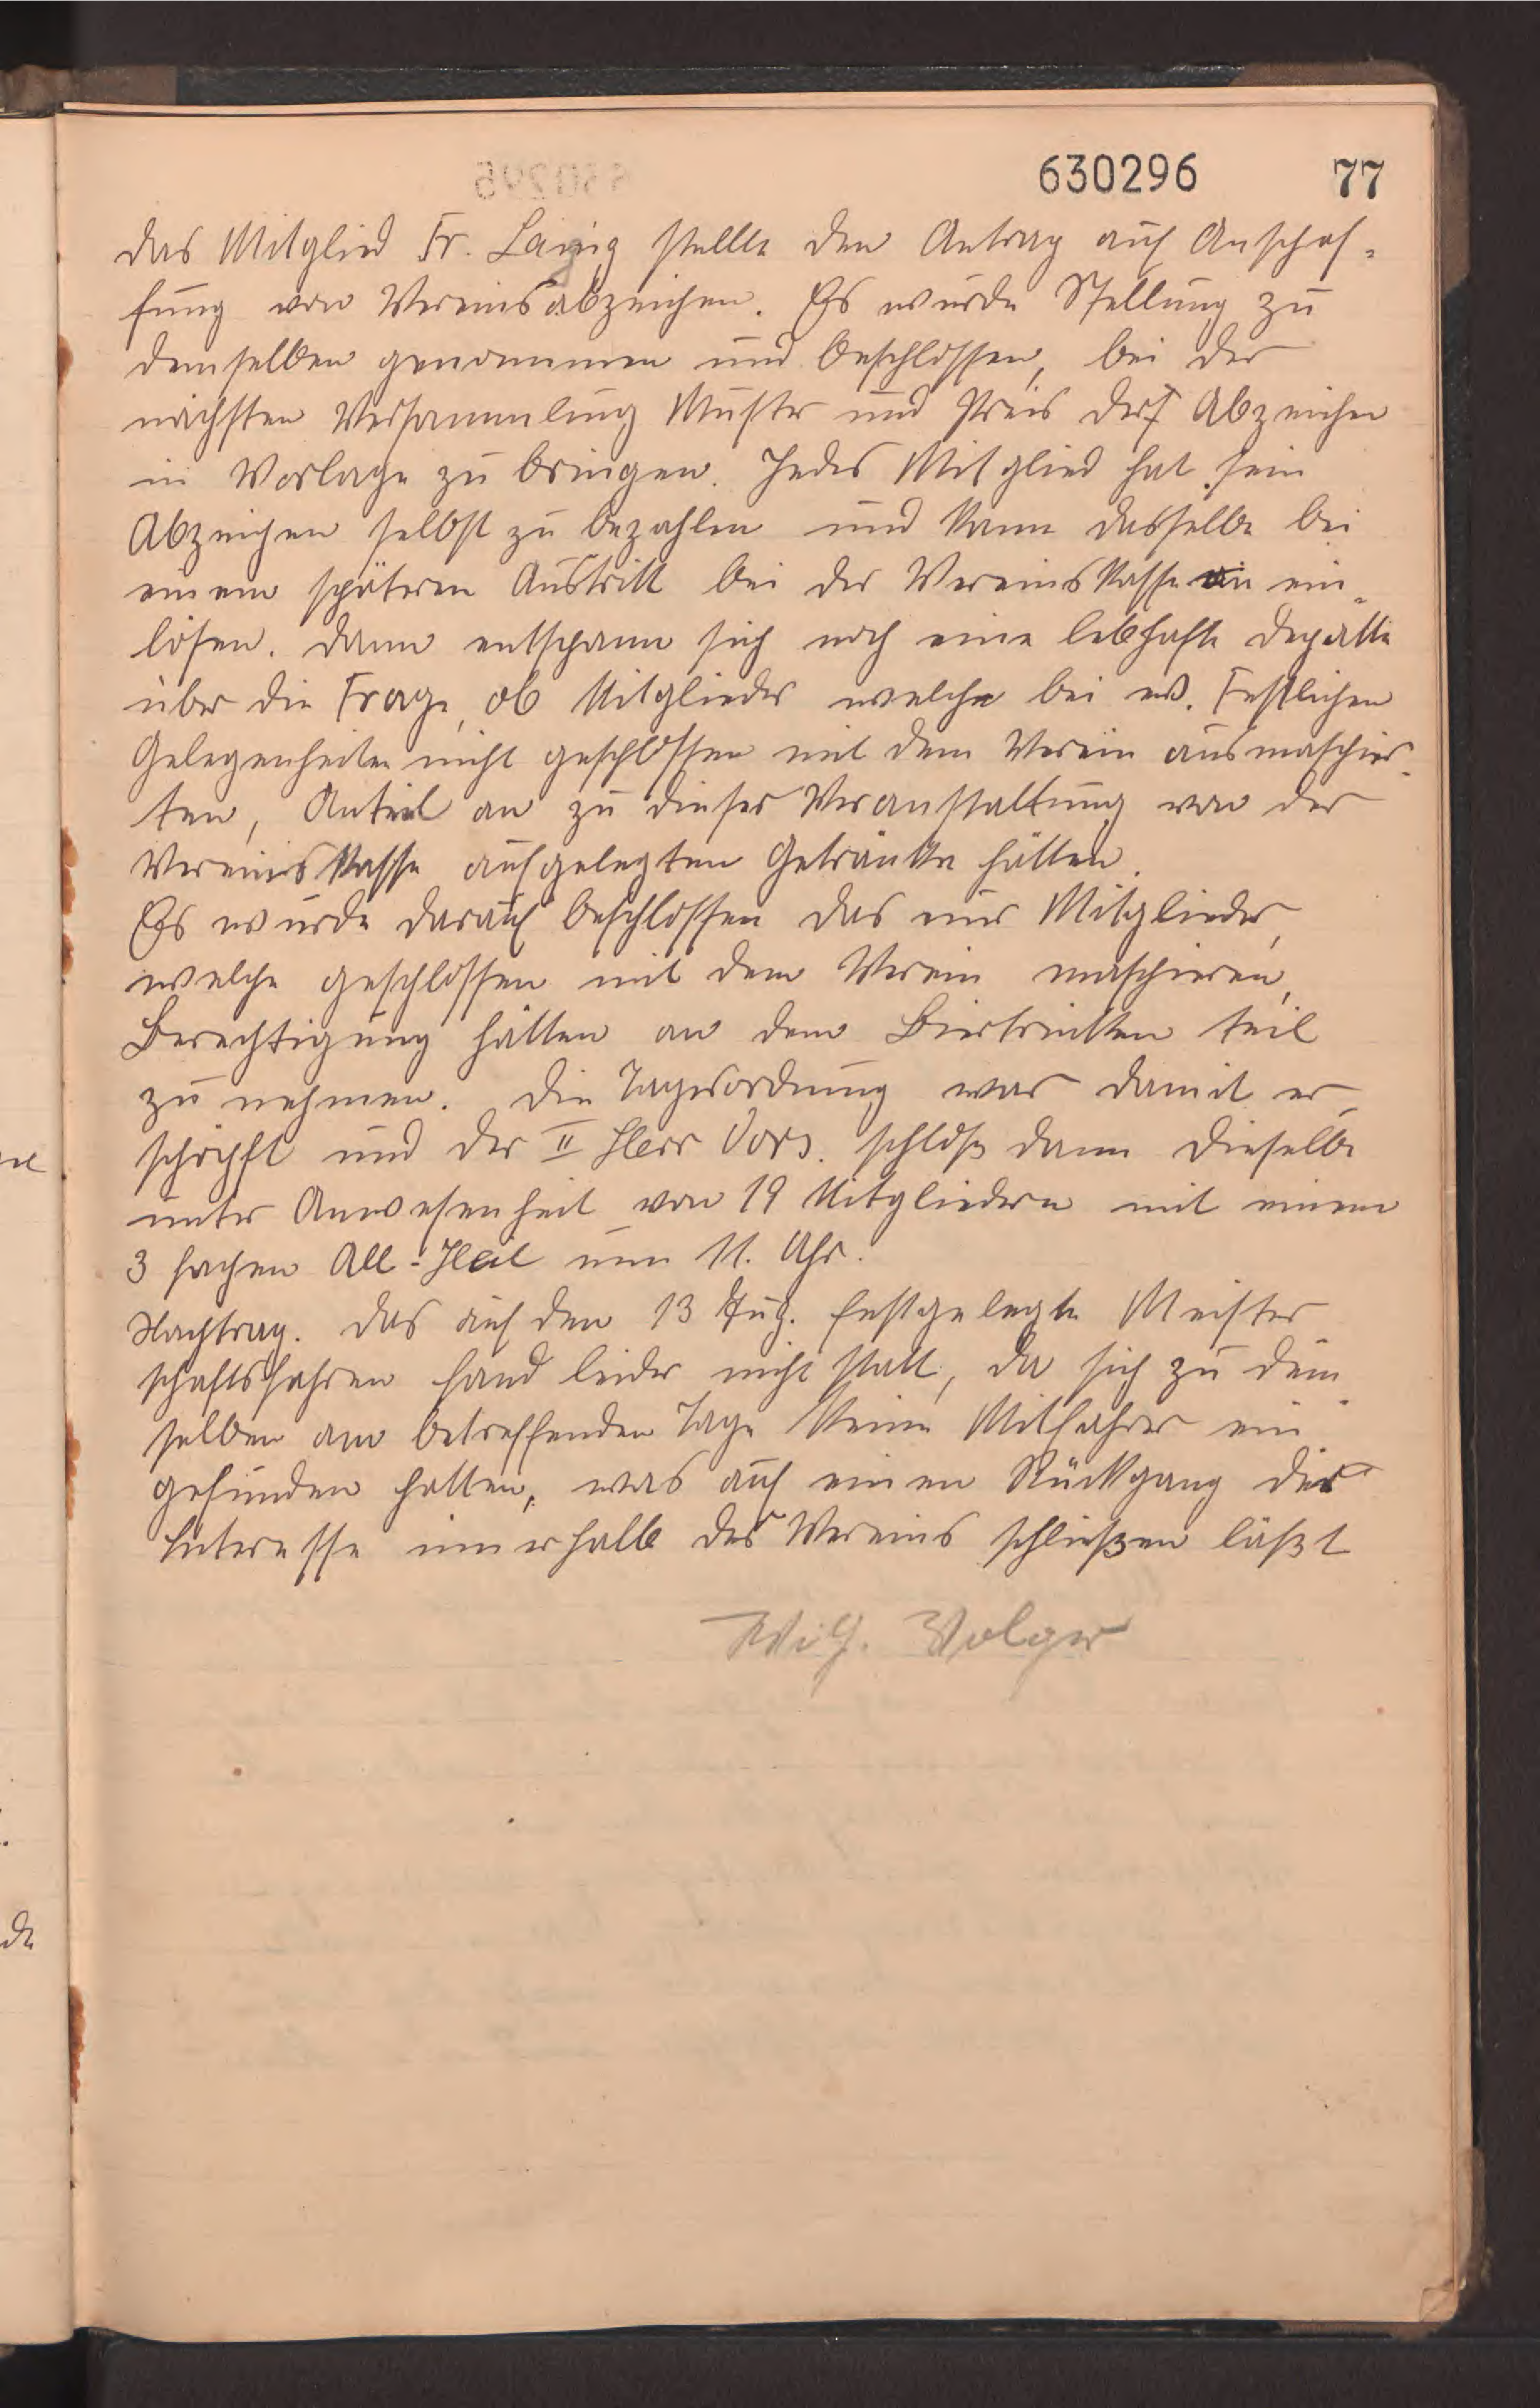 630296 77
das Mitglied Fr. Laing stellte den Antrag auf Anschaf-
fung von Vereinsabzeichen. Es wurde Stellung zu
demselben genommen und beschlossen, bei der
nächsten Versammlung Muster und Preis der Abzeichen
in Vorlage zu bringen. Jedes Mitglied hat sein
Abzeichen selbst zu bezahlen und kann dasselbe bei
einem späteren Austritt bei der Vereinskasse ein-
lösen. Dann entspann sich noch eine lebhafte Depatte
über die Frage, ob Mitglieder welche bei ev. Festlichen
Gelegenheiten nicht geschlossen mit dem Verein ausmaschier-
ten, Anteil an zu dieser Veranstaltung von der
Vereinskasse aufgelegten Getränke hätten.
Es wurde darauf beschlossen das nur Mitglieder,
welche geschlossen mit dem Verein maschieren,
Berechtigung hätten an dem Biertrinken teil
zu nehmen. Die Tagesordnung war damit er-
schöpft und der II Herr Vors. schloß dann dieselbe
unter Anwesenheit von 19 Mitgliedern mit einem
3 fachen All-Heil um 11. Uhr.
Nachtrag. Das auf den 13 Aug. festgelegte Meister
schaftsfahren fand leider nicht statt, da sich zu dem
selben am betreffenden Tage keine Mitfahrer ein
gefunden hatten, was auf einen Rückgang der
Interesse innerhalb des Vereins schließen läßt
Wilh. Volger